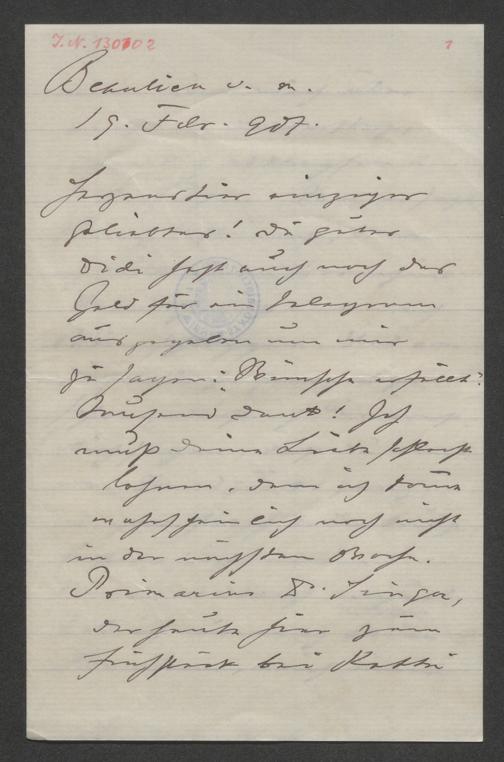 J.N. 130102
1
Beaulieu s. m.
19. Febr. 907.
Herzenstier einziger
geliebter! Du guter
Didi hast auch noch das
Geld für ein Telegramm
ausgegeben um mir
zu sagen: Wünsche erfüllt!
Tausend Dank! Ich
muß deine Liebe schlecht
lohnen, denn ich komme
wahrscheinlich noch nicht
in der nächsten Woche.
Primarius Dr. Singer,
der heute hier zum
Frühstück bei